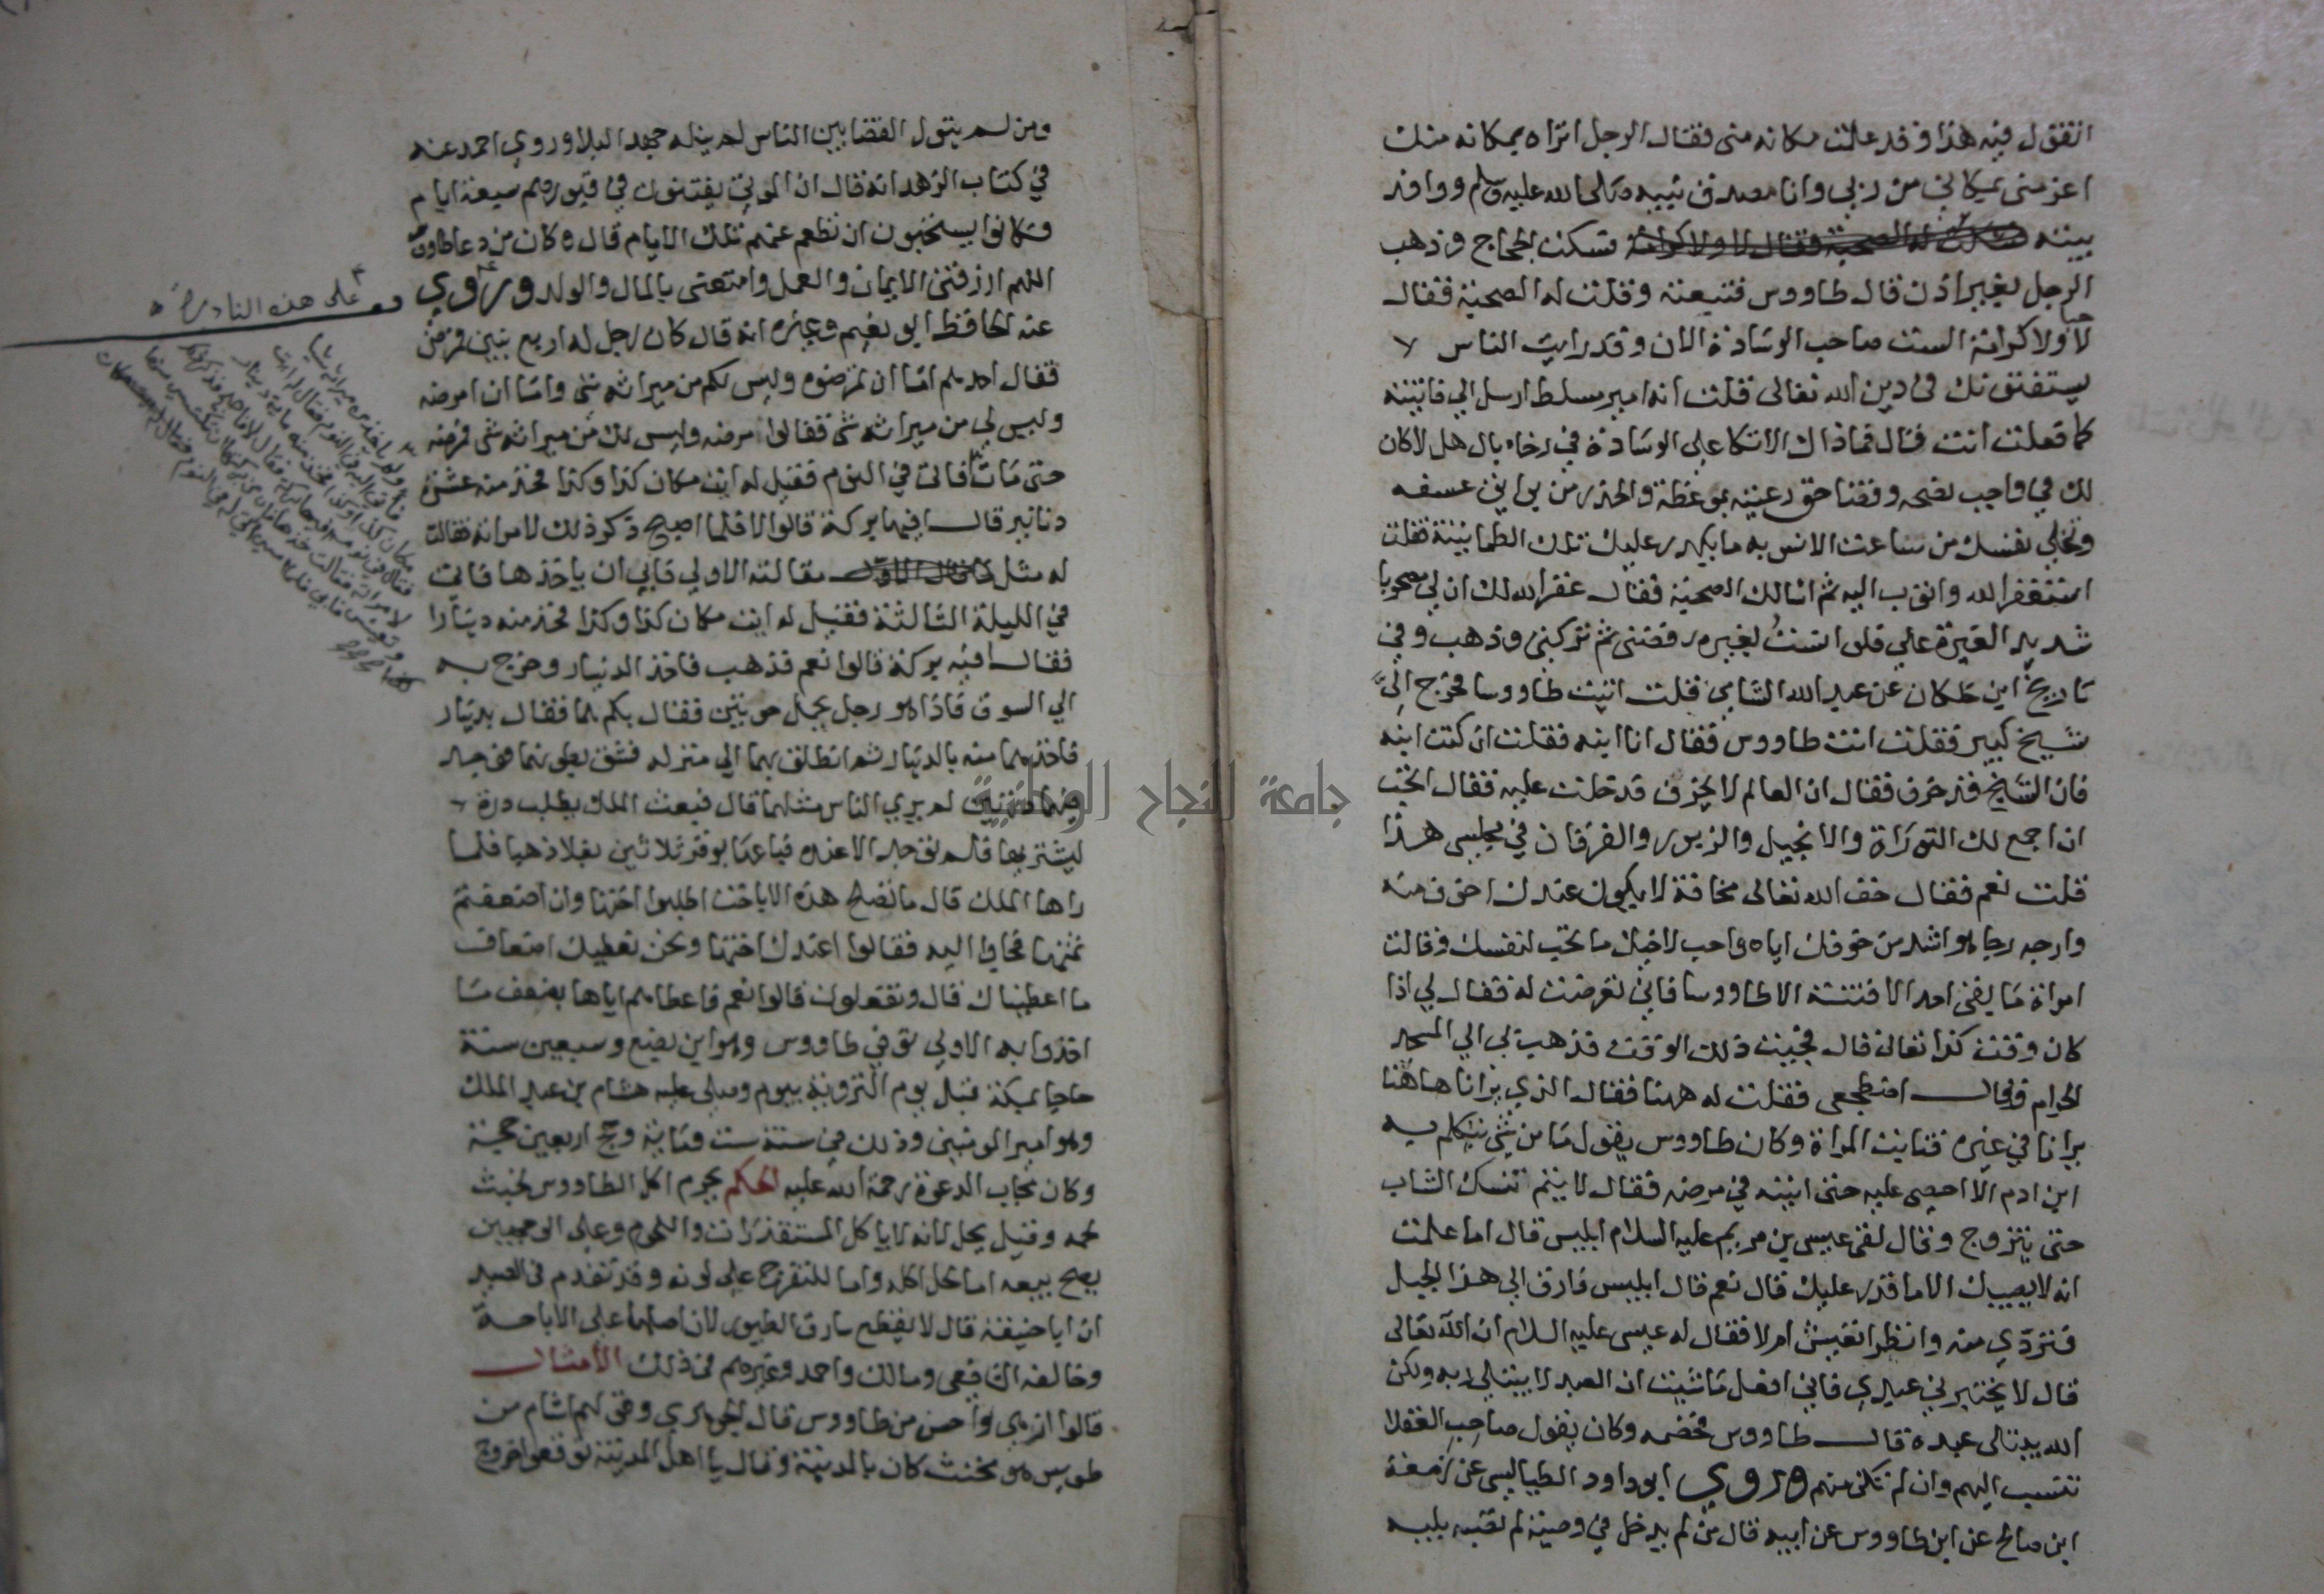 اتقول فيه هذا وقد علمت مكانه مني فقال الرجل اتراه بمكانه منك
اعز مني بمكاني من ربي وانا مصدق نبيه صلى الله عليه وسلم ووافد
بيته فسكت الحجاج وذهب
الرجل بغير اذن قال طاووس فتبعته وقلت له الصحبة فقال
لا ولا كرامة الست صاحب الوسادة الان وقد رايت الناس
يستفتونك في دين الله تعالى قلت انه امير مسلط ارسل الي فاتيته
كما فعلت انت قال فما ذاك الاتكا على الوسادة في رخاء بال هل لا كان
لك في واجب نصحه وقضا حق رعيته بموعظة والحذر من بوايق عسفه
وتخلي نفسك من ساعة الانس به ما يكدر عليك تلك الطمانينة فقلت
استغفر الله واتوب اليه ثم اسالك الصحبة فقال غفر الله لك ان لي مصحوبا
شديد الغيرة علي فلو انست لغيره رفضني ثم تركني وذهب وفي
تاريخ ابن خلكان عن عبد الله الشامي قلت اتيت طاووسا فخرج الي
شيخ كبير فقلت انت طاووس فقال انا ابنه فقلت ان كنت ابنه
فان الشيخ قد خرف فقال ان العالم لا يخرف فدخلت عليه فقال اتحب
ان اجمع لك التوراة والانجيل والزبور والفرقان في مجلسي هذا
قلت نعم فقال خف الله تعالى مخافة لا يكون عندك اخوف منه
وارجه رجا هو اشد من خوفك اياه واحب لاخيك ما تحب لنفسك وقالت
امراة ما بقي احد الا فتنته الا طاووسا فاني تعرضت له فقال لي اذا
كان وقت كذا تعالي قال فجيت ذلك الوقت فذهب بي الي المسجد
الحرام وقال اضطجعي فقلت له ههنا فقال الذي يرانا هاهنا
يرانا في غيره فتابت المراة وكان طاووس يقول ما من شي يتكلم به
ابن ادم الا احصي عليه حتى انينه في مرضه وقال لا يتم نسك الشاب
حتى يتزوج وقال لقي عيسى بن مريم عليه السلام ابليس قال اما علمت
انه لا يصيبك الا ما قدر عليك قال نعم قال ابليس فارق الي هذا الجبل
فتردى منه وانظر اتعيش ام لا فقال له عيسى عليه السلام ان الله تعالى
قال لا يختبرني عبدي فاني افعل ما شيت ان العبد لا يبتلي ربه ولكن
الله يبتلي عبده قال طاووس فخصمه وكان يقول صاحب العقلا
تنسب اليهم وان لم تكن منهم وروي ابو داود الطيالسي عن زمعة
ابن صالح عن ابن طاووس عن ابيه قال من لم يدخل في وصية لم تصبه بلية
ومن لم يتول القضا بين الناس لم ينله جهد البلا وروي احمد عنه
في كتاب الزهد انه قال ان الموتى يفتنون في قبورهم سبعة ايام
فكانوا يستحبون ان تطعم عنهم تلك الايام قال وكان من دعا طاووس
اللهم ارزقني الايمان والعمل وامتعني بالمال والولد وروي
عنه الحافظ ابو نعيم وغيره انه قال كان رجل له اربع بنين فمرض
فقال احدهم اما ان تمرضوه وليس لكم من ميراثه شي واما ان امرضه
وليس لي من ميراثه شي فقالوا مرضه وليس لك من ميراثه شي فمرضه
حتى مات فاتي في النوم فقيل له ايت مكان كذا وكذا فخذ منه عشرة
دنانير قال افيها بركة قالوا لا فلما اصبح ذكر ذلك لامراته فقالت
له مثل مقالته الاولى فابي ان ياخذها فاتي
في الليلة الثالثة فقيل له ايت مكان كذا وكذا فخذ منه دينارا
فقال افيه بركة قالوا نعم فذهب فاخذ الدينار وخرج به
الي السوق فاذا هو رجل يحمل حوتين فقال بكم هما فقال بدينار
فاخذهما منه بالدينار ثم انطلق بهما الي منزله فشق بطونهما فوجد
فيهما درتين لم يري الناس مثلهما قال فبعث الملك يطلب درة
ليشتريها فلم توجد الا عنده فباعها بوقر ثلاثين بغلا ذهبا فلما
راها الملك قال ما تصلح هذه الا باخت اطلبوا اختها وان اضعفتم
ثمنها فجاوا اليه فقالوا اعندك اختها ونحن نعطيك اضعاف
ما اعطيناك قال وتفعلون قالوا نعم فاعطاهم اياها بضعف ما
اخذوا به الاولى توفي طاووس وهو ابن بضع وسبعين سنة
حاجا بمكة قبل يوم التروية بيوم وصلى عليه هشام بن عبد الملك
وهو امير المومنين وذلك في سنة ست وماية وحج اربعين حجة
وكان مجاب الدعوة رحمة الله عليه الحكم يحرم اكل الطاووس لخبث
لحمه وقيل يحل لانه لا ياكل المستقذرات واللحوم وعلى الوجهين
يصح بيعه اما لحل اكله واما للتفرج على لونه وقد تقدم في الصيد
ان ابا حنيفة قال لا يقطع سارق الطيور لان اصلها على الاباحة
وخالفه الشافعي ومالك واحمد وغيرهم في ذلك الامثال
قالوا ازهي واحسن من طاووس قال الجوهري وقولهم اشام من
طويس هو مخنث كان بالمدينة وقال يا اهل المدينة توقعوا خروج
قف على هذه النادرة